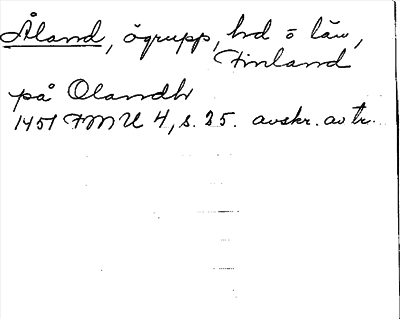 Åland, ögrupp, hd o län,
Finland
på Olandh
1451 FMU 4, s. 25. avskr. av tr.